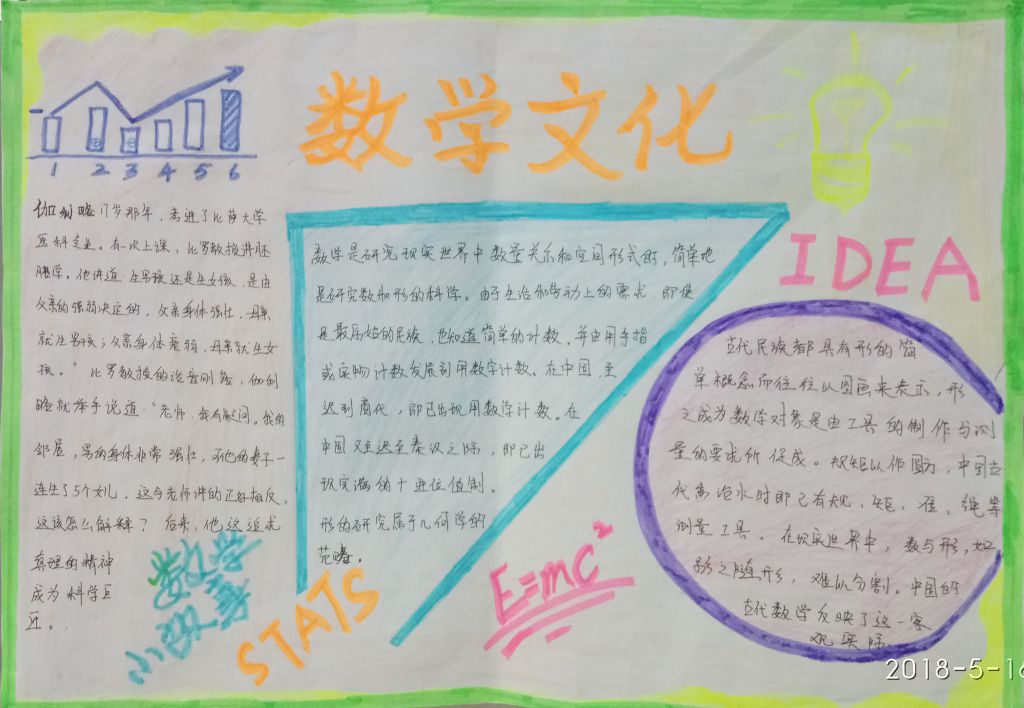 数学文化
1 2 3 4 5 6
伽利略17岁那年，考进了比萨大学
医科专业。有一次上课，比罗教授讲胚
胎学。他讲道：生男孩还是生女孩，是由
父亲的强弱决定的，父亲身体强壮，母亲
就生男孩；父亲身体衰弱，母亲就生女
孩。”比罗教授的话音刚落，伽利
略就举手说道“老师，我有疑问。我的
邻居，男的身体非常强壮，可他的妻子一
连生了5个女儿，这与老师讲的正好相反，
这该怎么解释？后来，他这追求
真理的精神
成为科学巨
匠。
数学
小故事
STATS
数学是研究现实世界中数量关系和空间形式的，简单地
是研究数和形的科学。由于生活和劳动上的需求，即使
是最原始的民族，也知道简单的计数，并由用手指
或实物计数发展到用数字计数。在中国，至
迟到商代，即已出现用数字计数。在
中国又至迟至秦汉之际，即已出
现完满的十进位值制。
形的研究属于几何学的
范畴。
E=mc²
IDEA
古代民族都具有形的简
单概念而往往以图画来表示，形
之成为数学对象是由工具的制作与测
量的要求所促成。规矩以作圆方，中国古
代禹治水时即已有规、矩、准、绳等
测量工具。在现实世界中，数与形，如
影之随形，难以分割。中国的
古代数学反映了这一客
观实际
2018-5-16